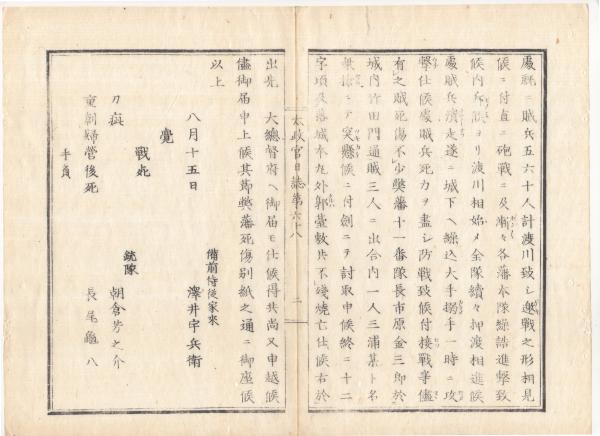 處縣ニ賊兵五六十人計渡川致シ邀戰之形相見
候ニ付直ニ砲戰ニ及漸々各藩本隊繰詰進撃致
候内兵隊ヨリ渡川相始メ全隊續々押渡相進候
處賊兵潰走遂ニ城下ヘ繰込大手搦手一時ニ攻
撃仕候處賊兵死力ヲ盡シ防戰致候付接戰等儘
有之賊死傷不少弊藩十一番隊長市原金三郎於
城内許田門通賊三人ニ出合内一人三浦某ト名
乗槍ニテ突懸候ニ付劍ニテ討取申候終ニ十二
字頃及落城本丸外郭臺數共不殘燒亡仕候右於
太政官日誌第六十八
二
出先　大總督府ヘ御届モ仕候得共尚又申越候
儘御届申上候其節弊藩死傷別紙之通ニ御座候
以上
八月十五日
備前侍從家來
澤井宇兵衛
覺
戰死
銃隊
刀疵
朝倉芳之介
重朝歸營後死
長尾龜八
手負